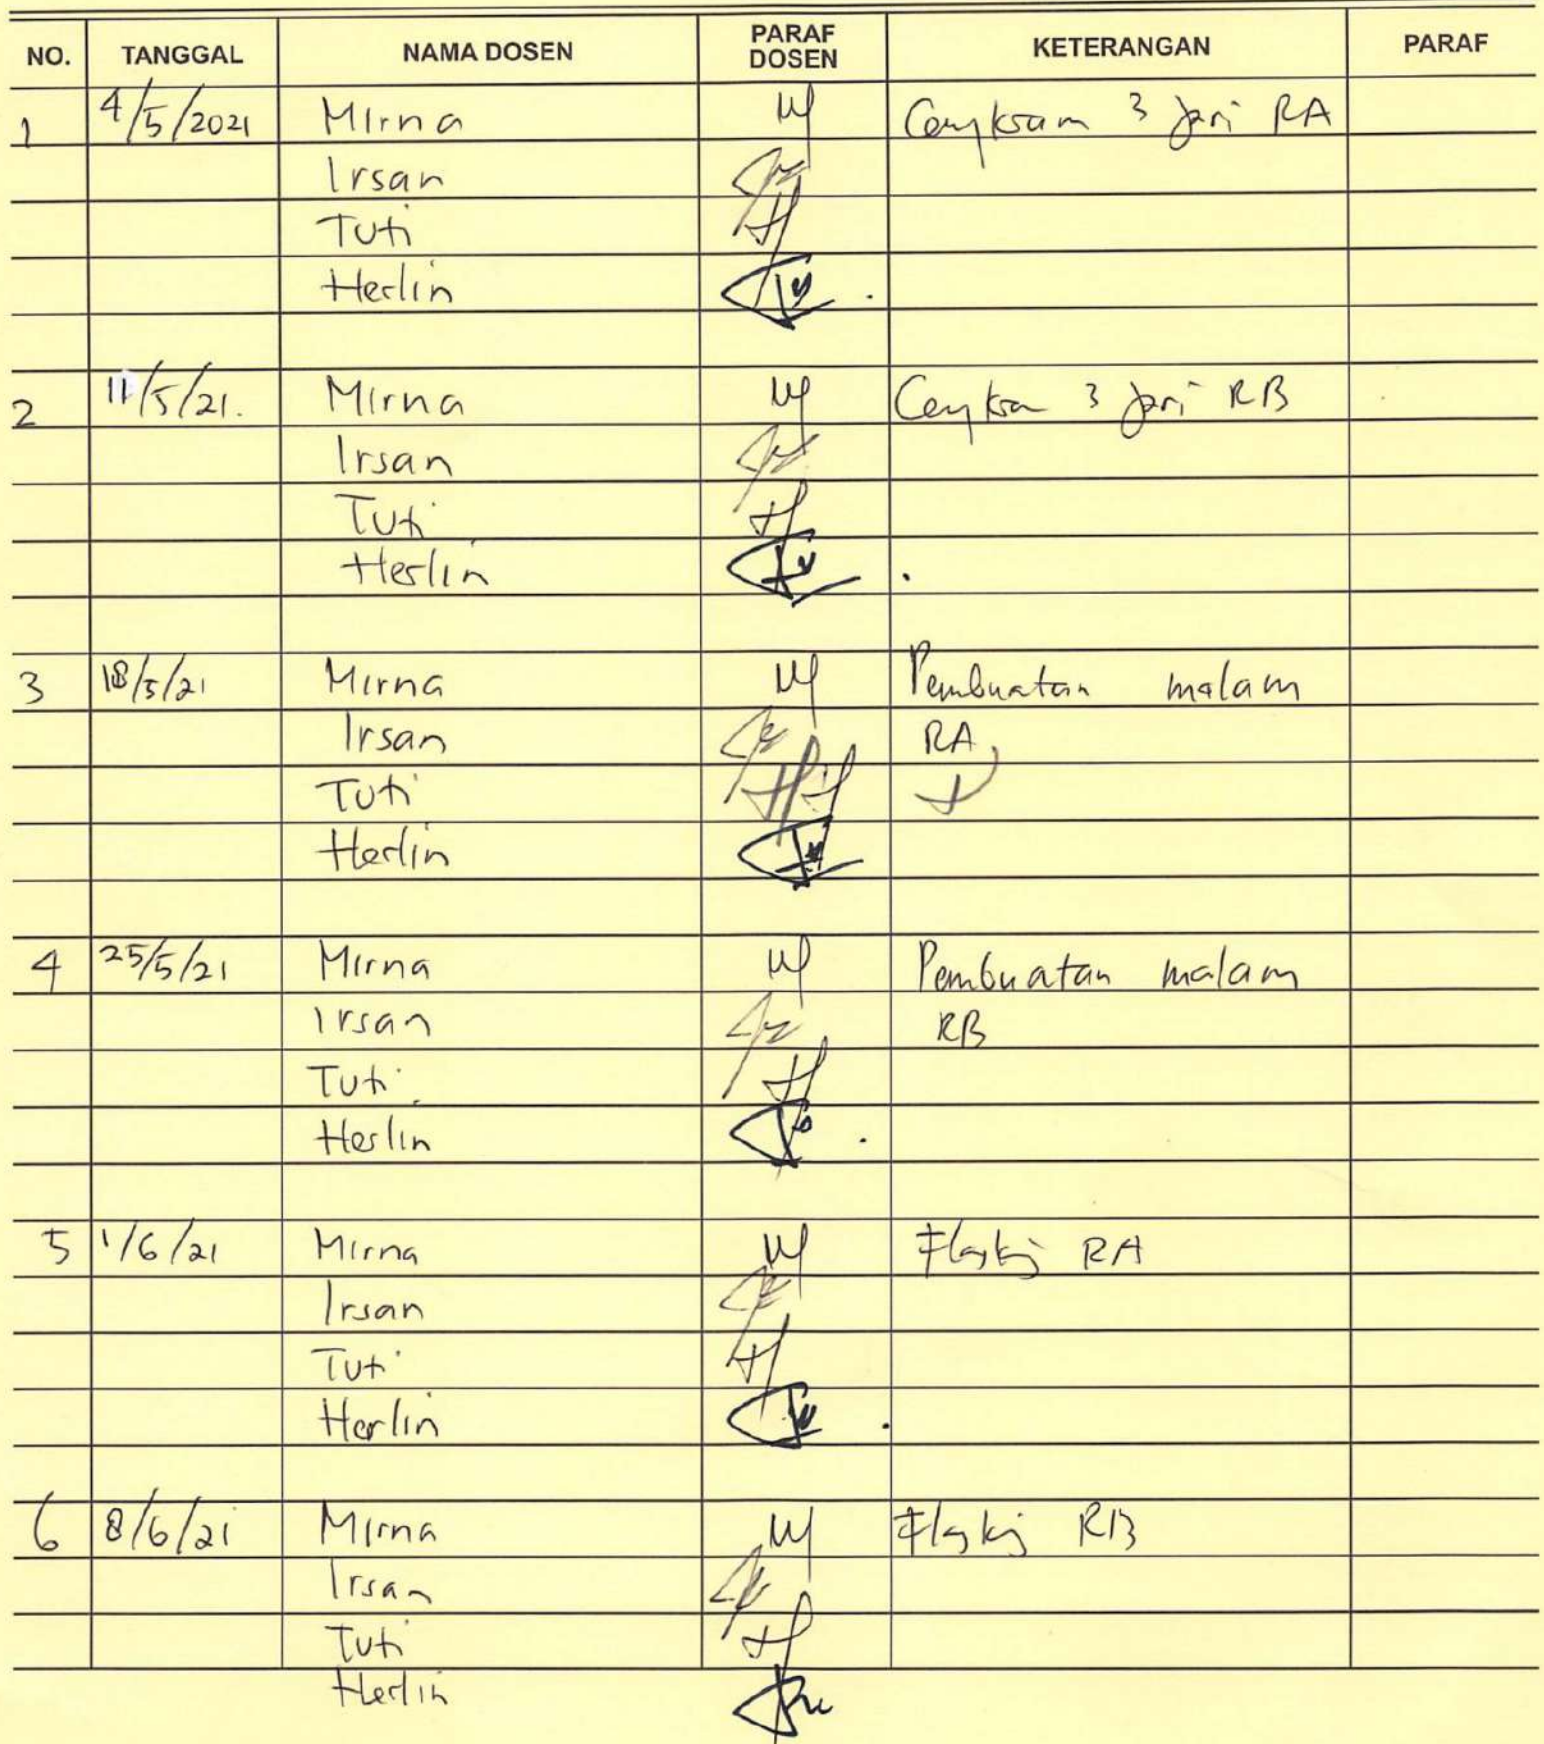 NO. TANGGAL NAMA DOSEN PARAF DOSEN KETERANGAN PARAF
1 4/5/2021 Mirna Cengkram 3 jari RA
Irsan
Tuti
Herlin
2 11/5/21. Mirna 3 jari RB
Irsan
Tuti
Herlin
3 18/5/21 Mirna Pembuatan malam
Irsan RA
Tuti
Herlin
4 25/5/21 Mirna Pembuatan malam
Irsan RB
Tuti
Herlin
5 1/6/21 Mirna RA
Irsan
Tuti
Herlin
6 8/6/21 Mirna RB
Irsan
Tuti
Herlin